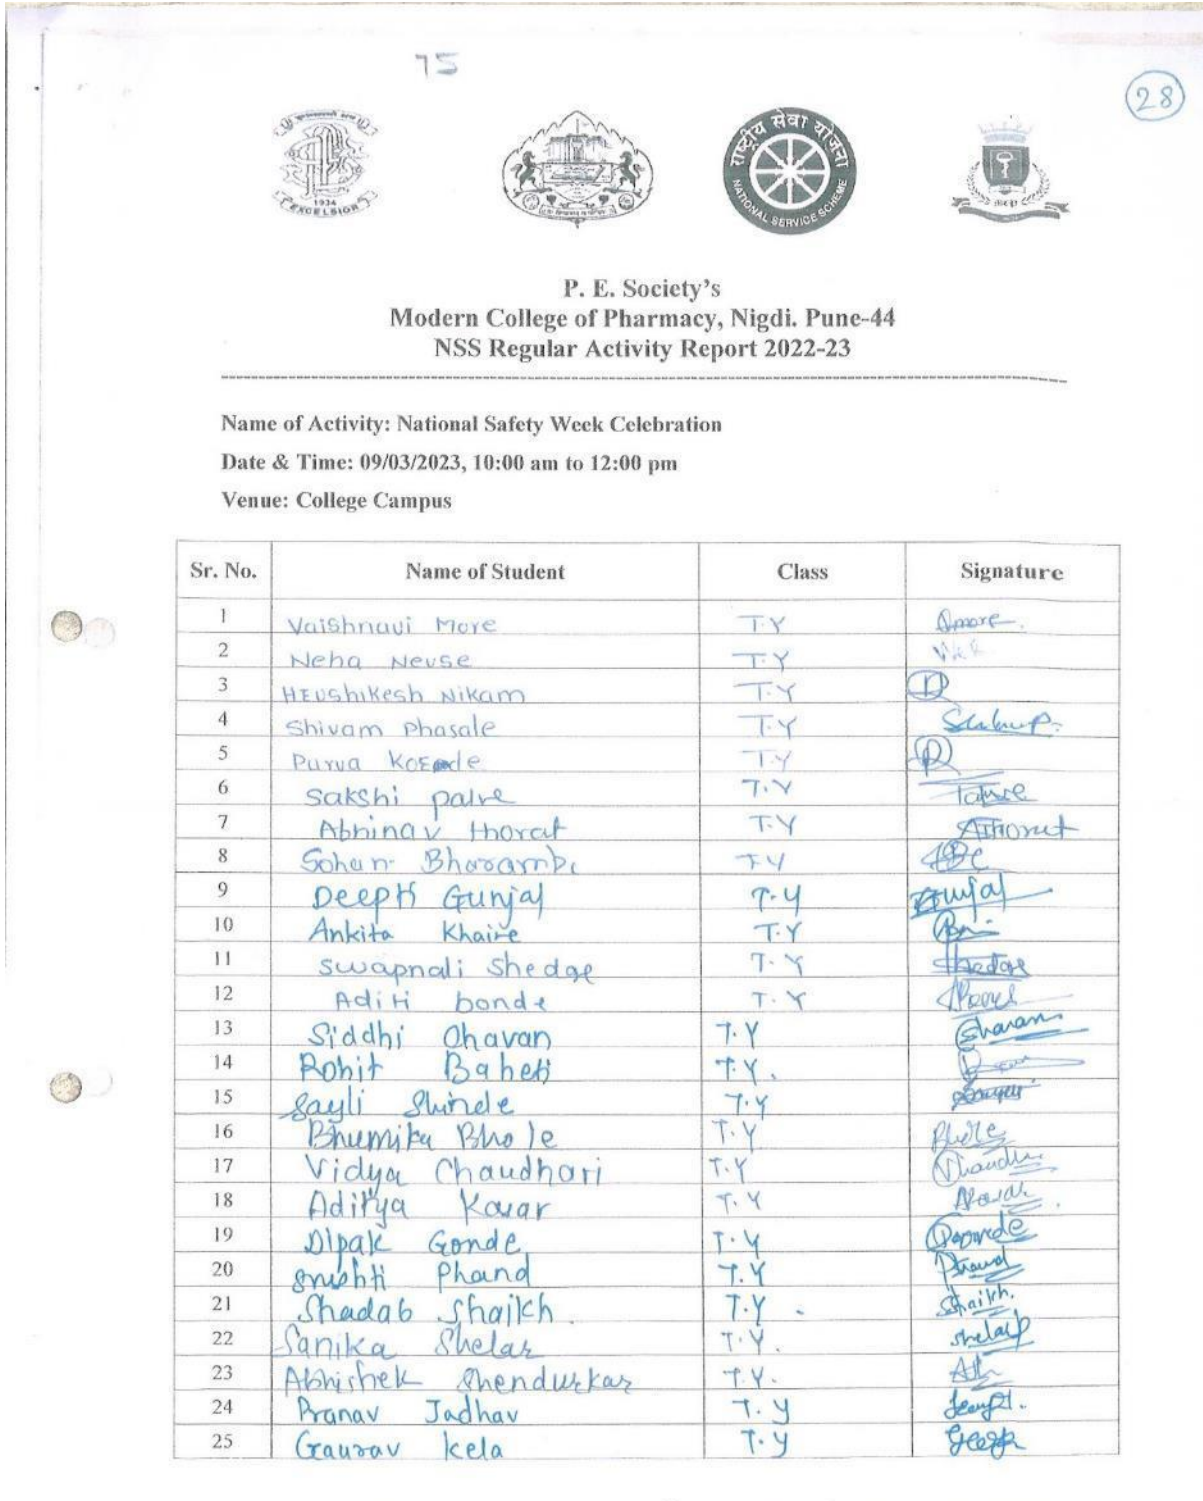 75
28
1934
EXCELSIOR
राष्ट्रीय सेवा योजना
NATIONAL SERVICE SCHEME
mcp
P. E. Society's
Modern College of Pharmacy, Nigdi. Pune-44
NSS Regular Activity Report 2022-23
Name of Activity: National Safety Week Celebration
Date & Time: 09/03/2023, 10:00 am to 12:00 pm
Venue: College Campus
Sr. No. Name of Student Class Signature
1 Vaishnavi More T.Y
2 Neha Nevse T.Y
3 Nikam T.Y
4 Shivam Phasale T.Y
5 Purva T.Y
6 Sakshi palve T.Y
7 Abhinav thorat T.Y AThorat
8 Sohan Bharambe T.Y
9 Deepti Gunjal T.Y Gunjal
10 Ankita Khaire T.Y
11 Swapnali Shedge T.Y Shedge
12 Aditi bonde T.Y
13 Siddhi Chavan T.Y Chavan
14 Rohit Baheti T.Y.
15 Sayli Shinde T.Y
16 Bhumika Bhole T.Y Bhole
17 Vidya Chaudhari T.Y
18 Aditya Kavar T.Y
19 Dipak Gonde T.Y
20 Srushti Phand T.Y Phand
21 Shadab Shaikh T.Y. Shaikh.
22 Sanika Shelar T.Y. Shelar
23 Abhishek Shendurkar T.Y.
24 Pranav Jadhav T.Y
25 Gaurav kela T.Y